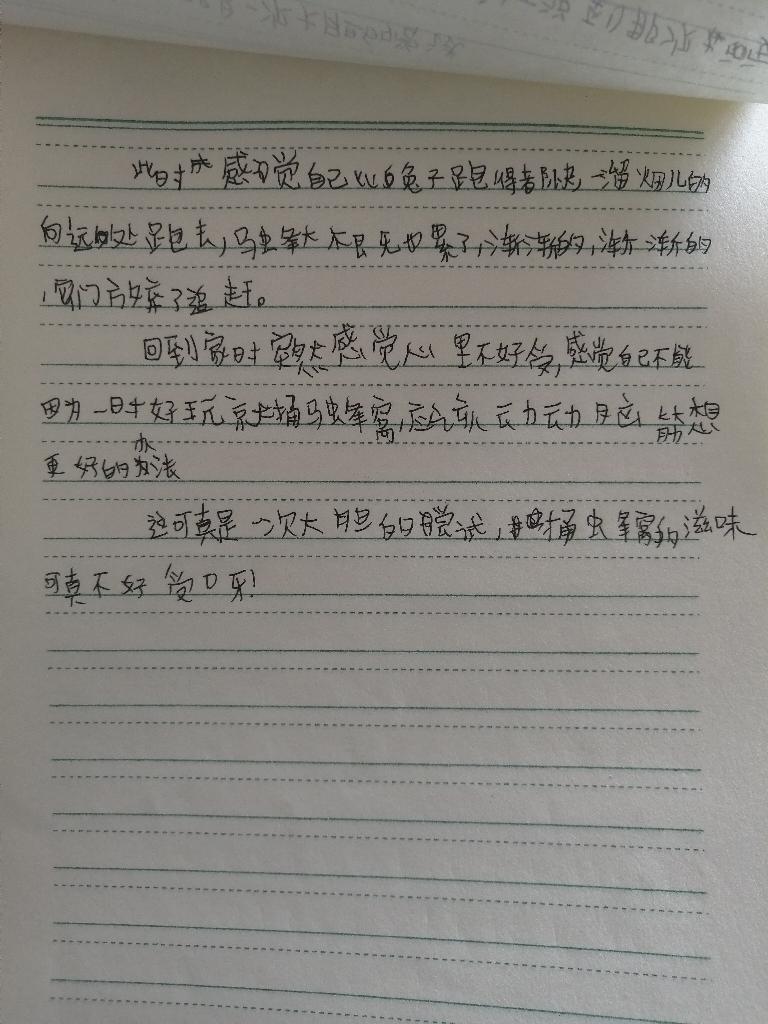 此时我感觉自己比白兔子跑得都快,一溜烟儿的
向远的处跑去,马蜂大不只无也累了,渐渐的,渐渐的
,它们放弃了追赶。
回到家时突然感觉心里不好受,感觉自己不能
因为一时好玩就捅马蜂窝,应该动动脑筋想
更好的办法
这可真是一次大胆的尝试,捅虫蜂窝的滋味
可真不好受呀!